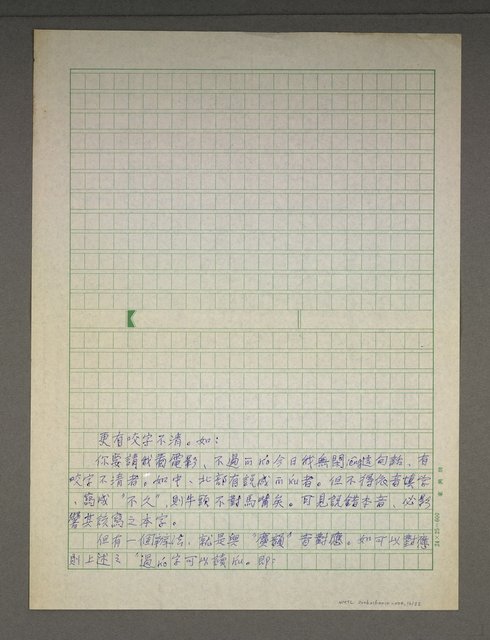 更有咬字不清。如：
你要請我看電影、不過而的今日我無閒 這句話、有
咬字不清者。如中、北部有說成 而 者。但不得 者據它
、寫成“不久”,則牛頭不對馬嘴矣。可見說錯本音、必影
響其該寫之本字。
但有一個辦法、就是與“廣韻”音對應。如可以對應
則上述之“過 的字可以 。即：
24×25=600